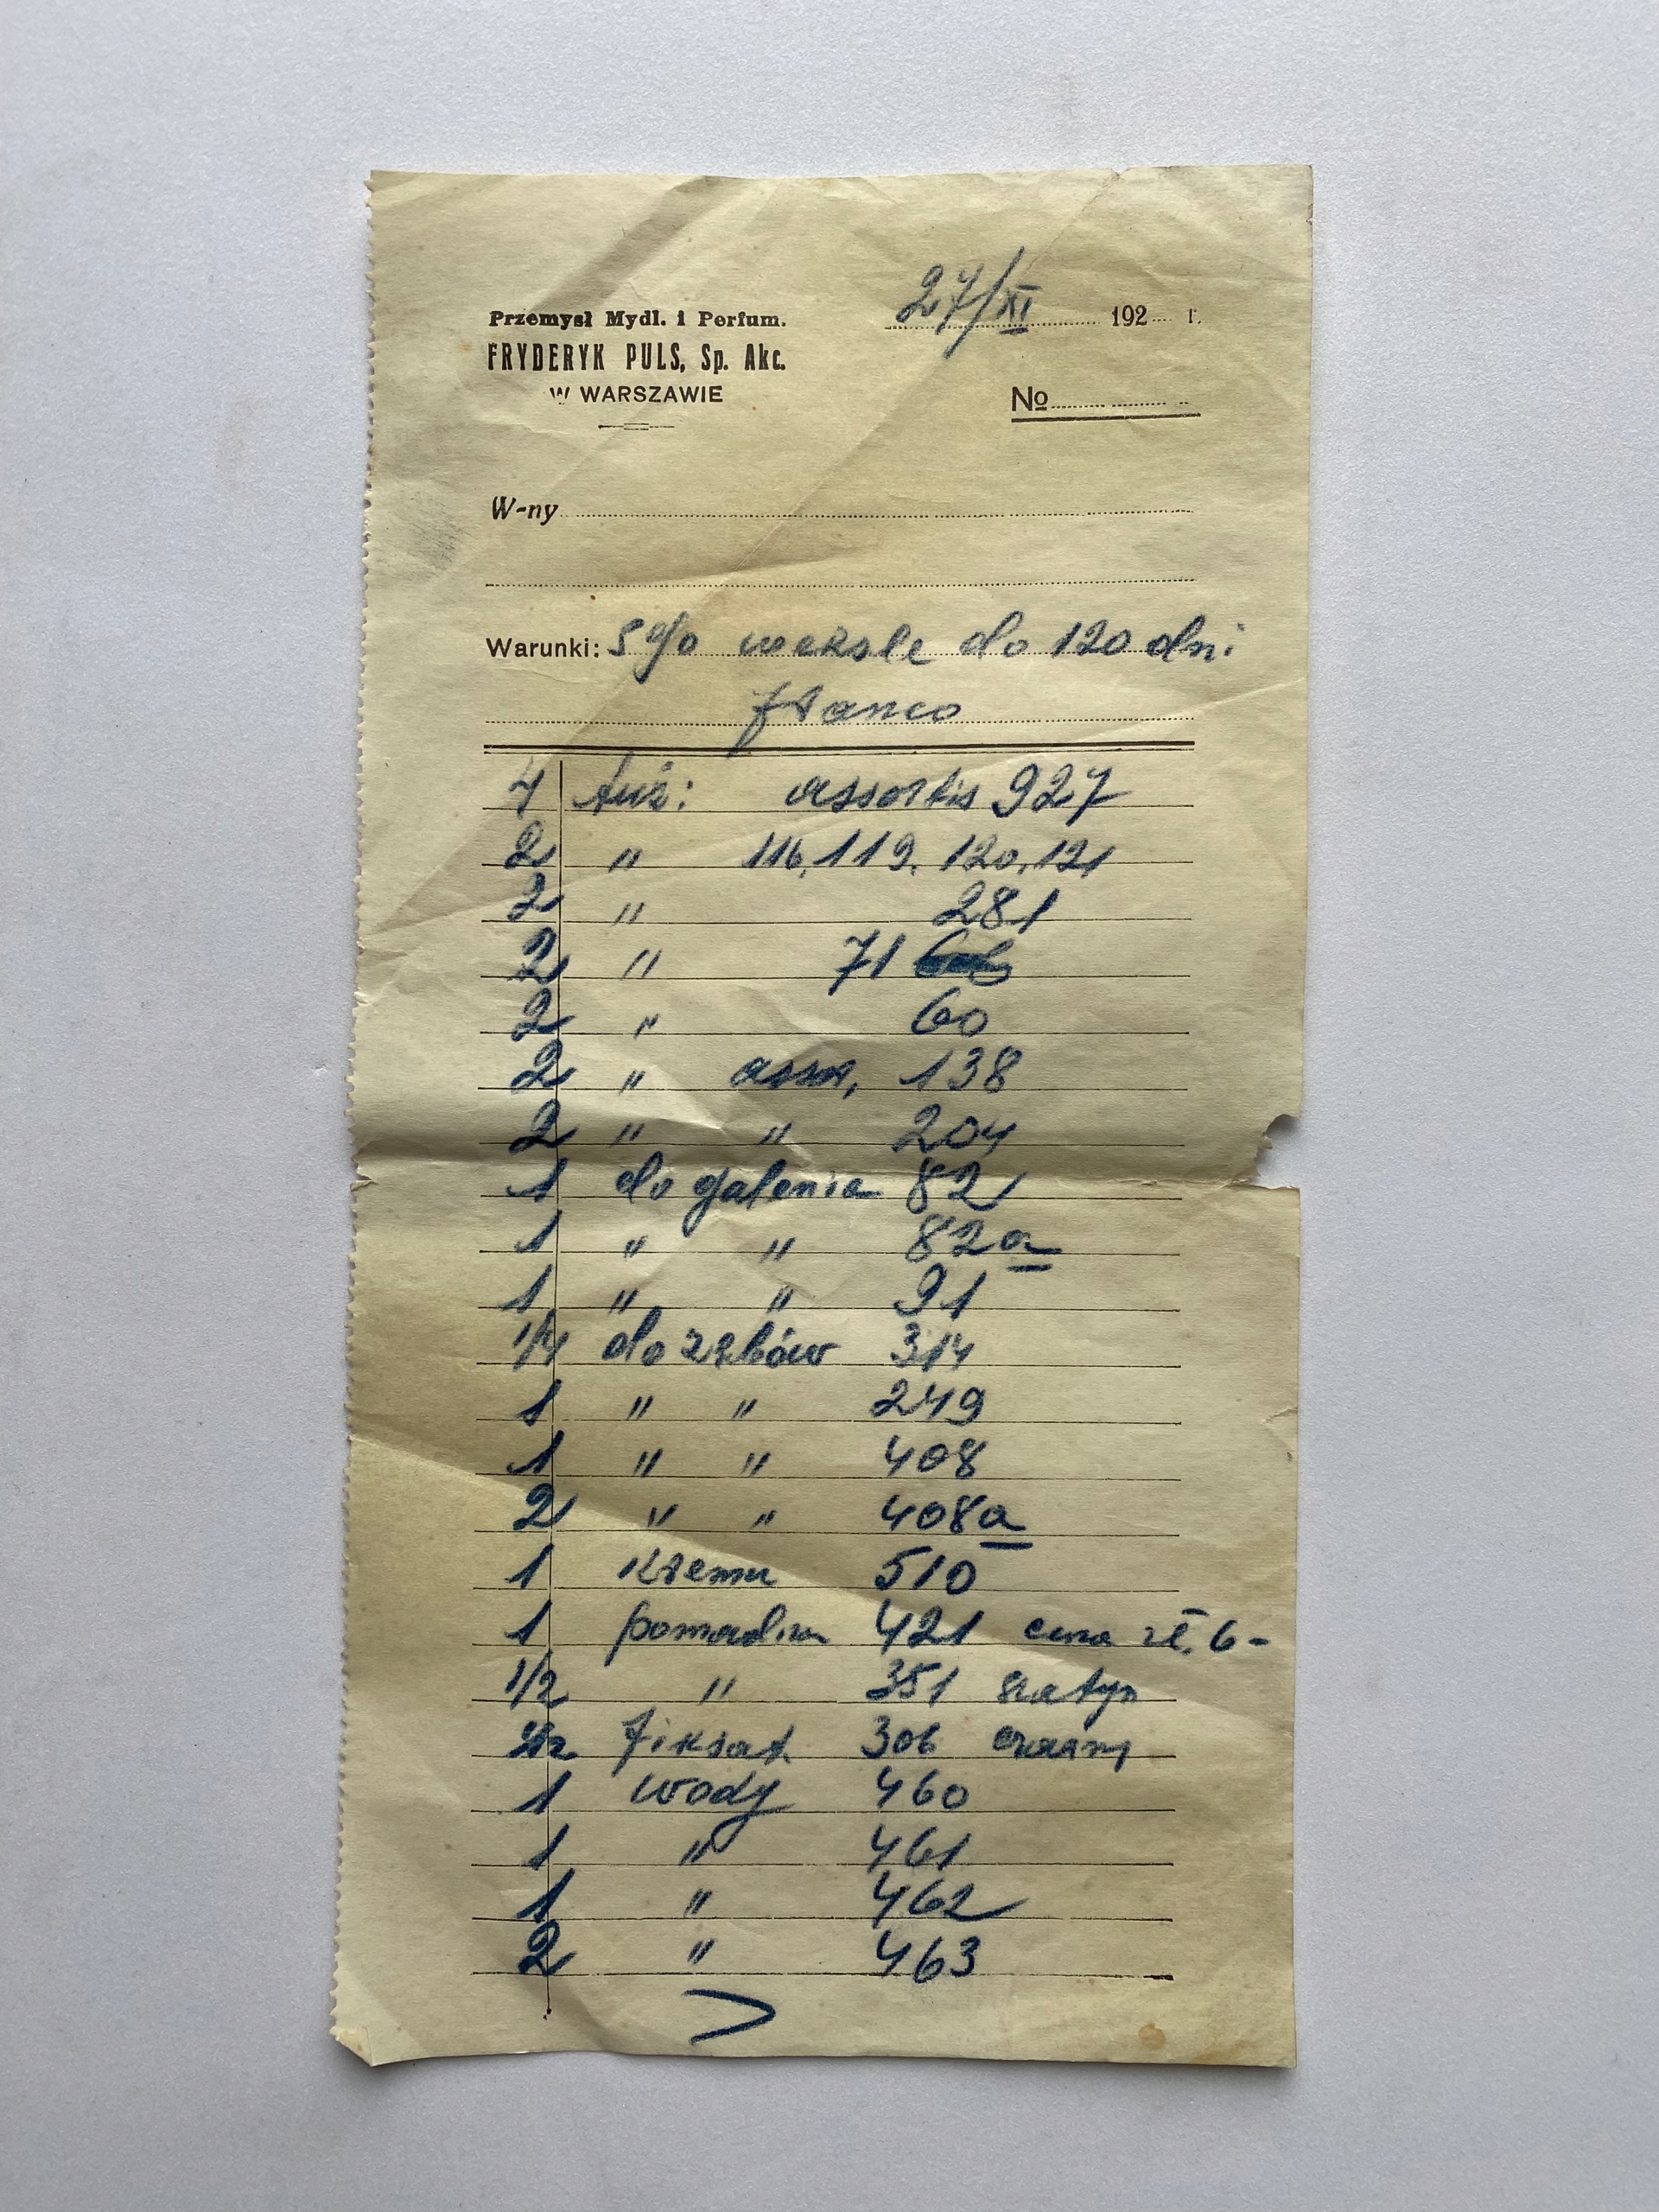 27/XI 192 r.
Przemysł Mydl. i Perfum.
FRYDERYK PULS, Sp. Akc.
W WARSZAWIE
No
W-ny
Warunki: 5% weksle do 120 dni
franco
4 tuz: assortis 927
2 " 116, 119, 120, 121
2 " 281
2 " 71
2 " 60
2 " assor, 138
2 " " 204
1 do golenia 82
1 " " 82a
1 " " 91
1/4 do zębów 314
1 " " 249
1 " " 408
2 " " 408a
1 Kremu 510
1 pomadka 421 cena zł. 6-
1/2 " 351
Fiksat. 306 czarny
1 wody 460
1 " 461
1 " 462
2 " 463
>